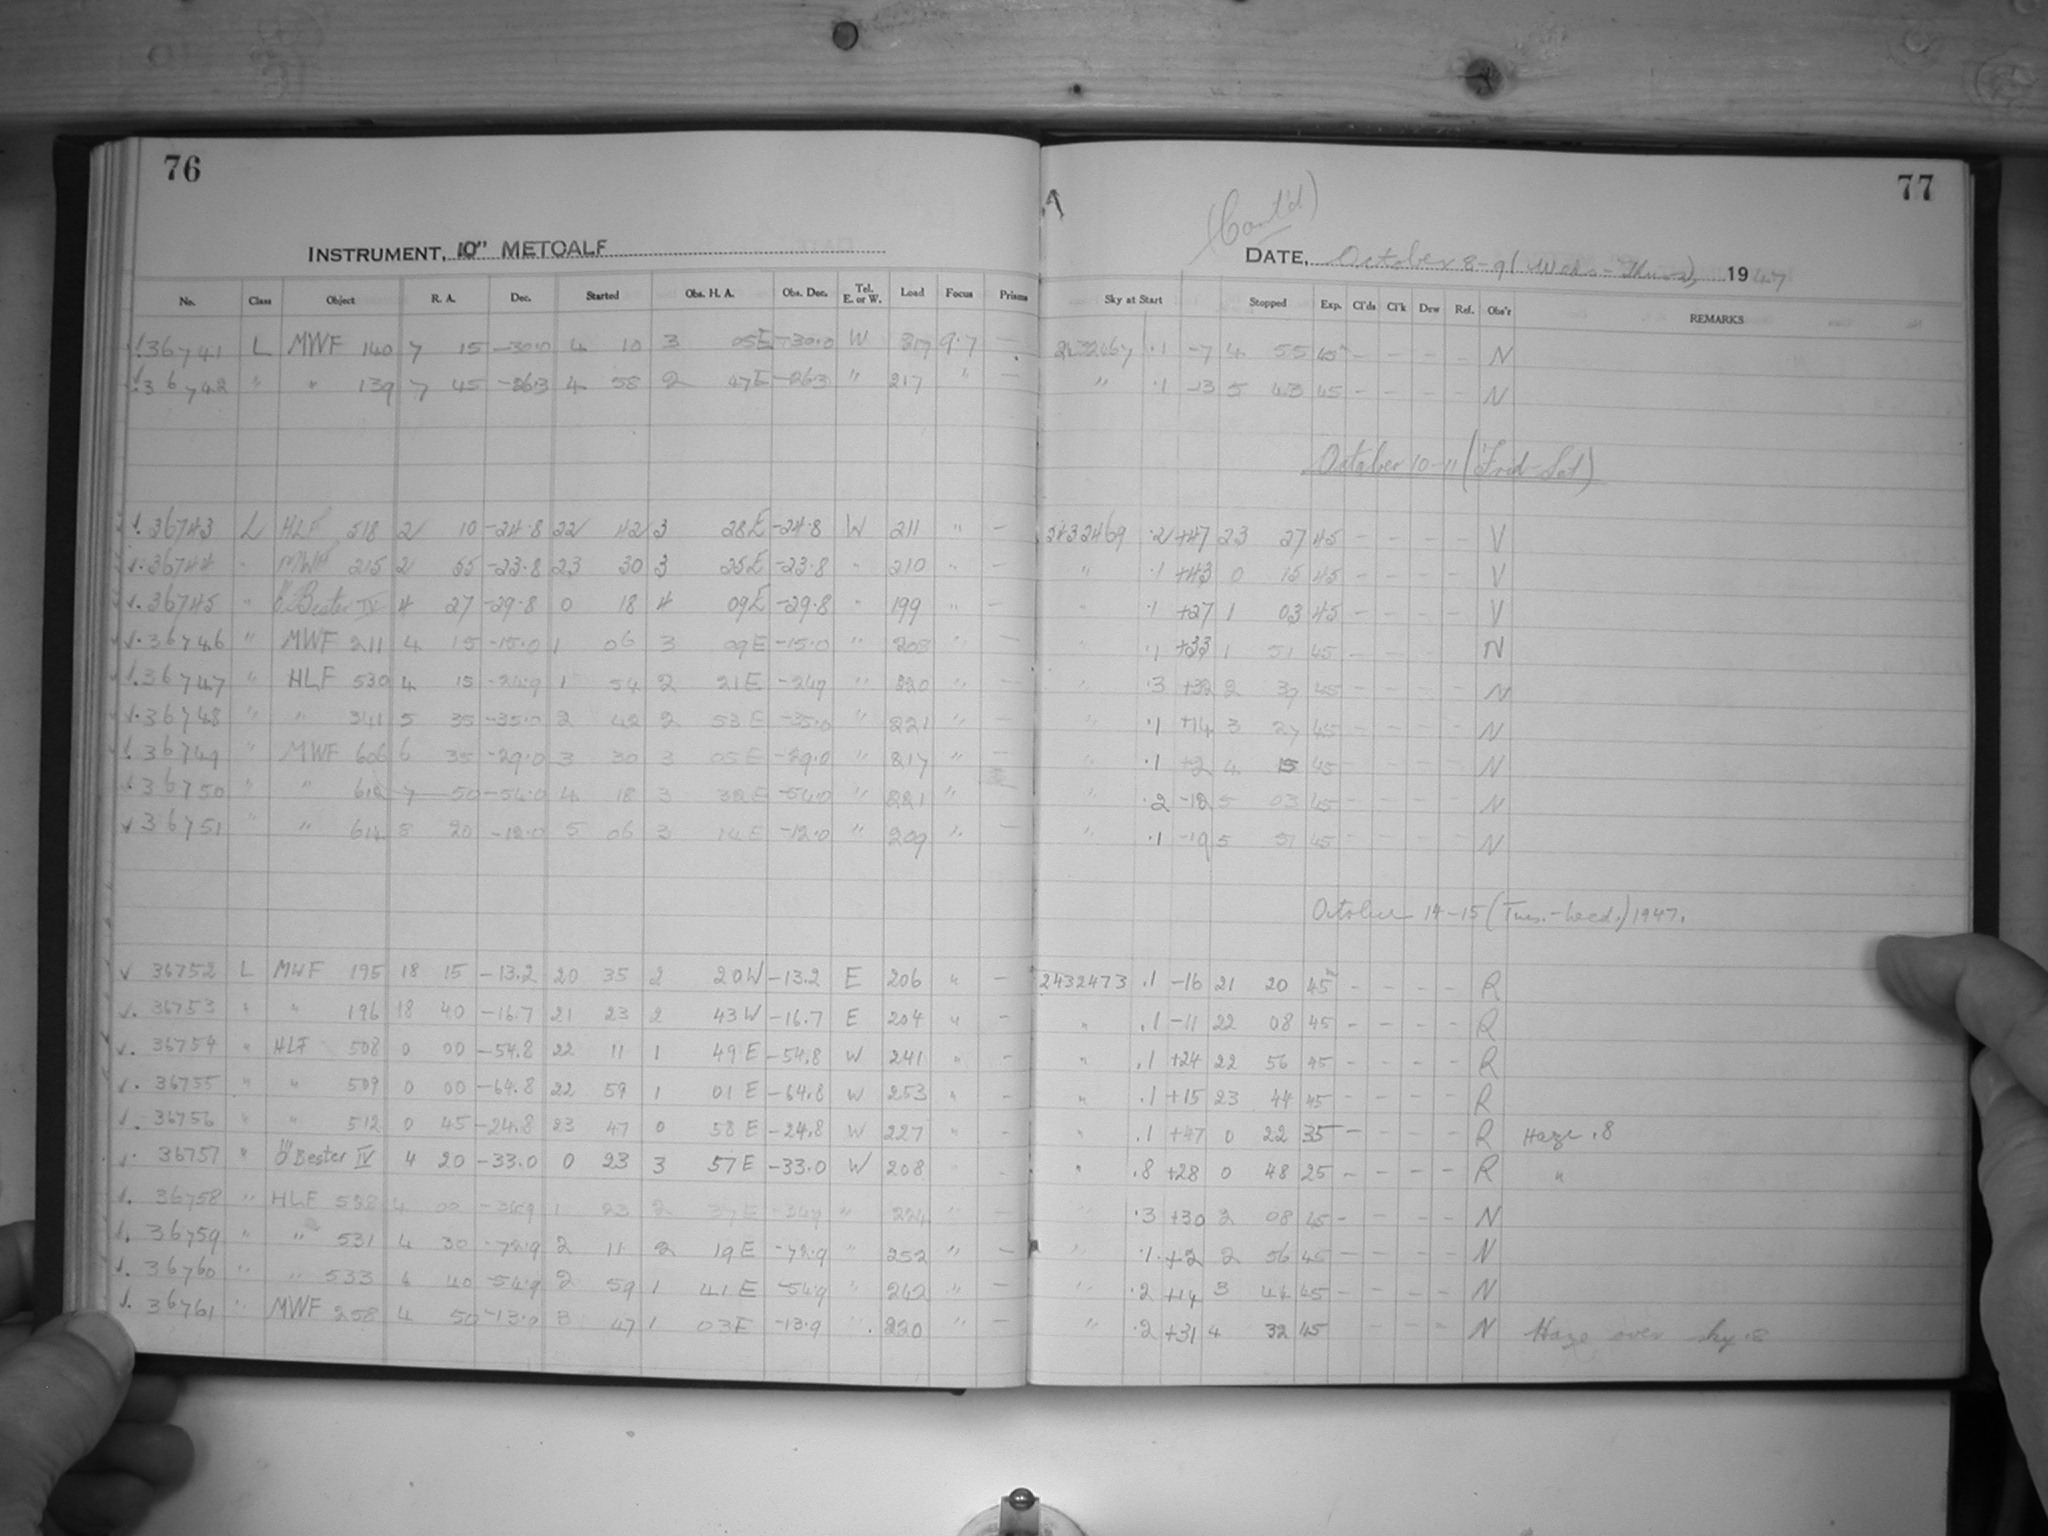 76
77
(Cont'd)
INSTRUMENT, 10" METCALF
DATE, October 8-9 (Weds-Thurs), 1947
No. Class Object R. A. Dec. Started Obs. H. A. Obs. Dec. Tel. E. or W. Load Focus Prisms Sky at Start Stopped Exp. Cl'ds Cl'k Dew Ref. Obs'r REMARKS
36741 L MWF 140 7 15 -30.0 4 10 3 05E -30.0 W 217 9.7 — 2432467 .1 -7 4 55 45 - - - - N
36742 " " 139 7 45 -26.3 4 58 2 47E -26.3 " 217 " — " .1 -13 5 43 45 - - - - N
October 10-11 (Frid-Sat)
36743 L HLF 518 2 10 -24.8 22 42 3 28E -24.8 W 211 " — 2432469 .2 +47 23 27 45 - - - - V
36744 " MWF 215 2 55 -23.8 23 30 3 25E -23.8 " 210 " — " .1 +43 0 15 45 - - - - V
36745 " Bester IV 4 27 -29.8 0 18 4 09E -29.8 " 199 " — " .1 +27 1 03 45 - - - - V
36746 " MWF 211 4 15 -15.0 1 06 3 09E -15.0 " 208 " — " .1 +33 1 51 45 - - - - N
36747 " HLF 530 4 15 -24.9 1 54 2 21E -24.9 " 220 " — " .3 +32 2 39 45 - - - - N
36748 " " 341 5 35 -35.0 2 42 2 53E -35.0 " 221 " — " .1 +14 3 27 45 - - - - N
36749 " MWF 606 6 35 -29.0 3 30 3 05E -29.0 " 217 " — " .1 +2 4 15 45 - - - - N
36750 " " 612 7 50 -54.0 4 18 3 32E -54.0 " 221 " " .2 -12 5 03 45 - - - - N
36751 " " 614 8 20 -12.0 5 06 3 14E -12.0 " 209 " — " .1 -19 5 51 45 - - - - N
October 14-15 (Tues.-Wed.) 1947.
36752 L MWF 195 18 15 -13.2 20 35 2 20W -13.2 E 206 " — 2432473 .1 -16 21 20 45 - - - - R
36753 " " 196 18 40 -16.7 21 23 2 43W -16.7 E 204 " — " .1 -11 22 08 45 - - - - R
36754 " HLF 508 0 00 -54.8 22 11 1 49E -54.8 W 241 " — " .1 +24 22 56 45 - - - - R
36755 " " 509 0 00 -64.8 22 59 1 01E -64.8 W 253 " — " .1 +15 23 44 45 - - - - R
36756 " " 512 0 45 -24.8 23 47 0 58E -24.8 W 227 " — " .1 +47 0 22 35 - - - - R Haze .8
36757 " Bester IV 4 20 -33.0 0 23 3 57E -33.0 W 208 " — " .8 +28 0 48 25 - - - - R "
36758 " HLF 528 4 00 1 23 2 37E " 224 " — " .3 +30 2 08 45 - - - - N
36759 " " 531 4 30 -72.9 2 11 2 19E -72.9 " 252 " — " .1 +2 2 56 45 - - - - N
36760 " " 533 4 40 -54.9 2 59 1 41E -54.9 " 242 " — " .2 +14 3 44 45 - - - - N
36761 " MWF 258 4 50 3 47 1 03E -13.9 " 220 " — " .2 +31 4 32 45 - - - N Haze over sky .8